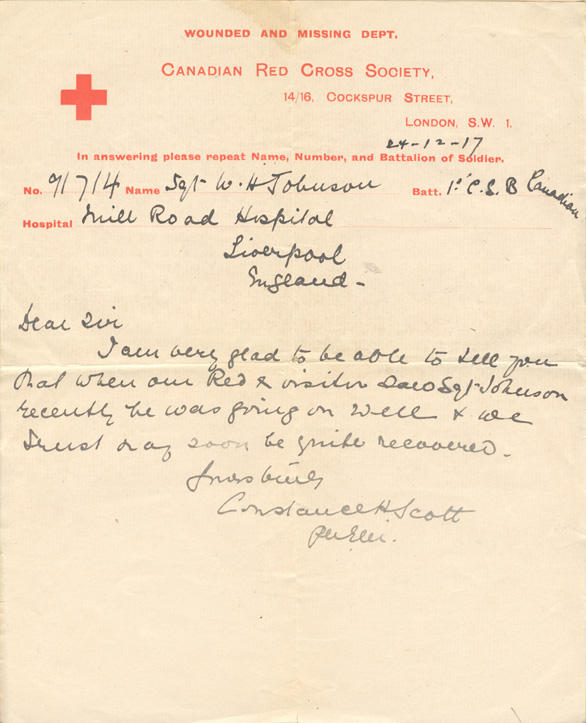 WOUNDED AND MISSING DEPT.
CANADIAN RED CROSS SOCIETY,
14/16, COCKSPUR STREET,
LONDON, S.W. 1.
24-12-17
In answering please repeat Name, Number, and Battalion of Soldier.
No. 91714 Name Sgt W. H Johnson Batt. C. S. B Canadian
Hospital Mill Road Hospital
Liverpool
England -
Dear Sir
I am very glad to be able to tell you
that when our Red X visitor saw Sgt Johnson
recently he was going on well & we
trust may soon be quite recovered.
Yours truly
Constance H Scott